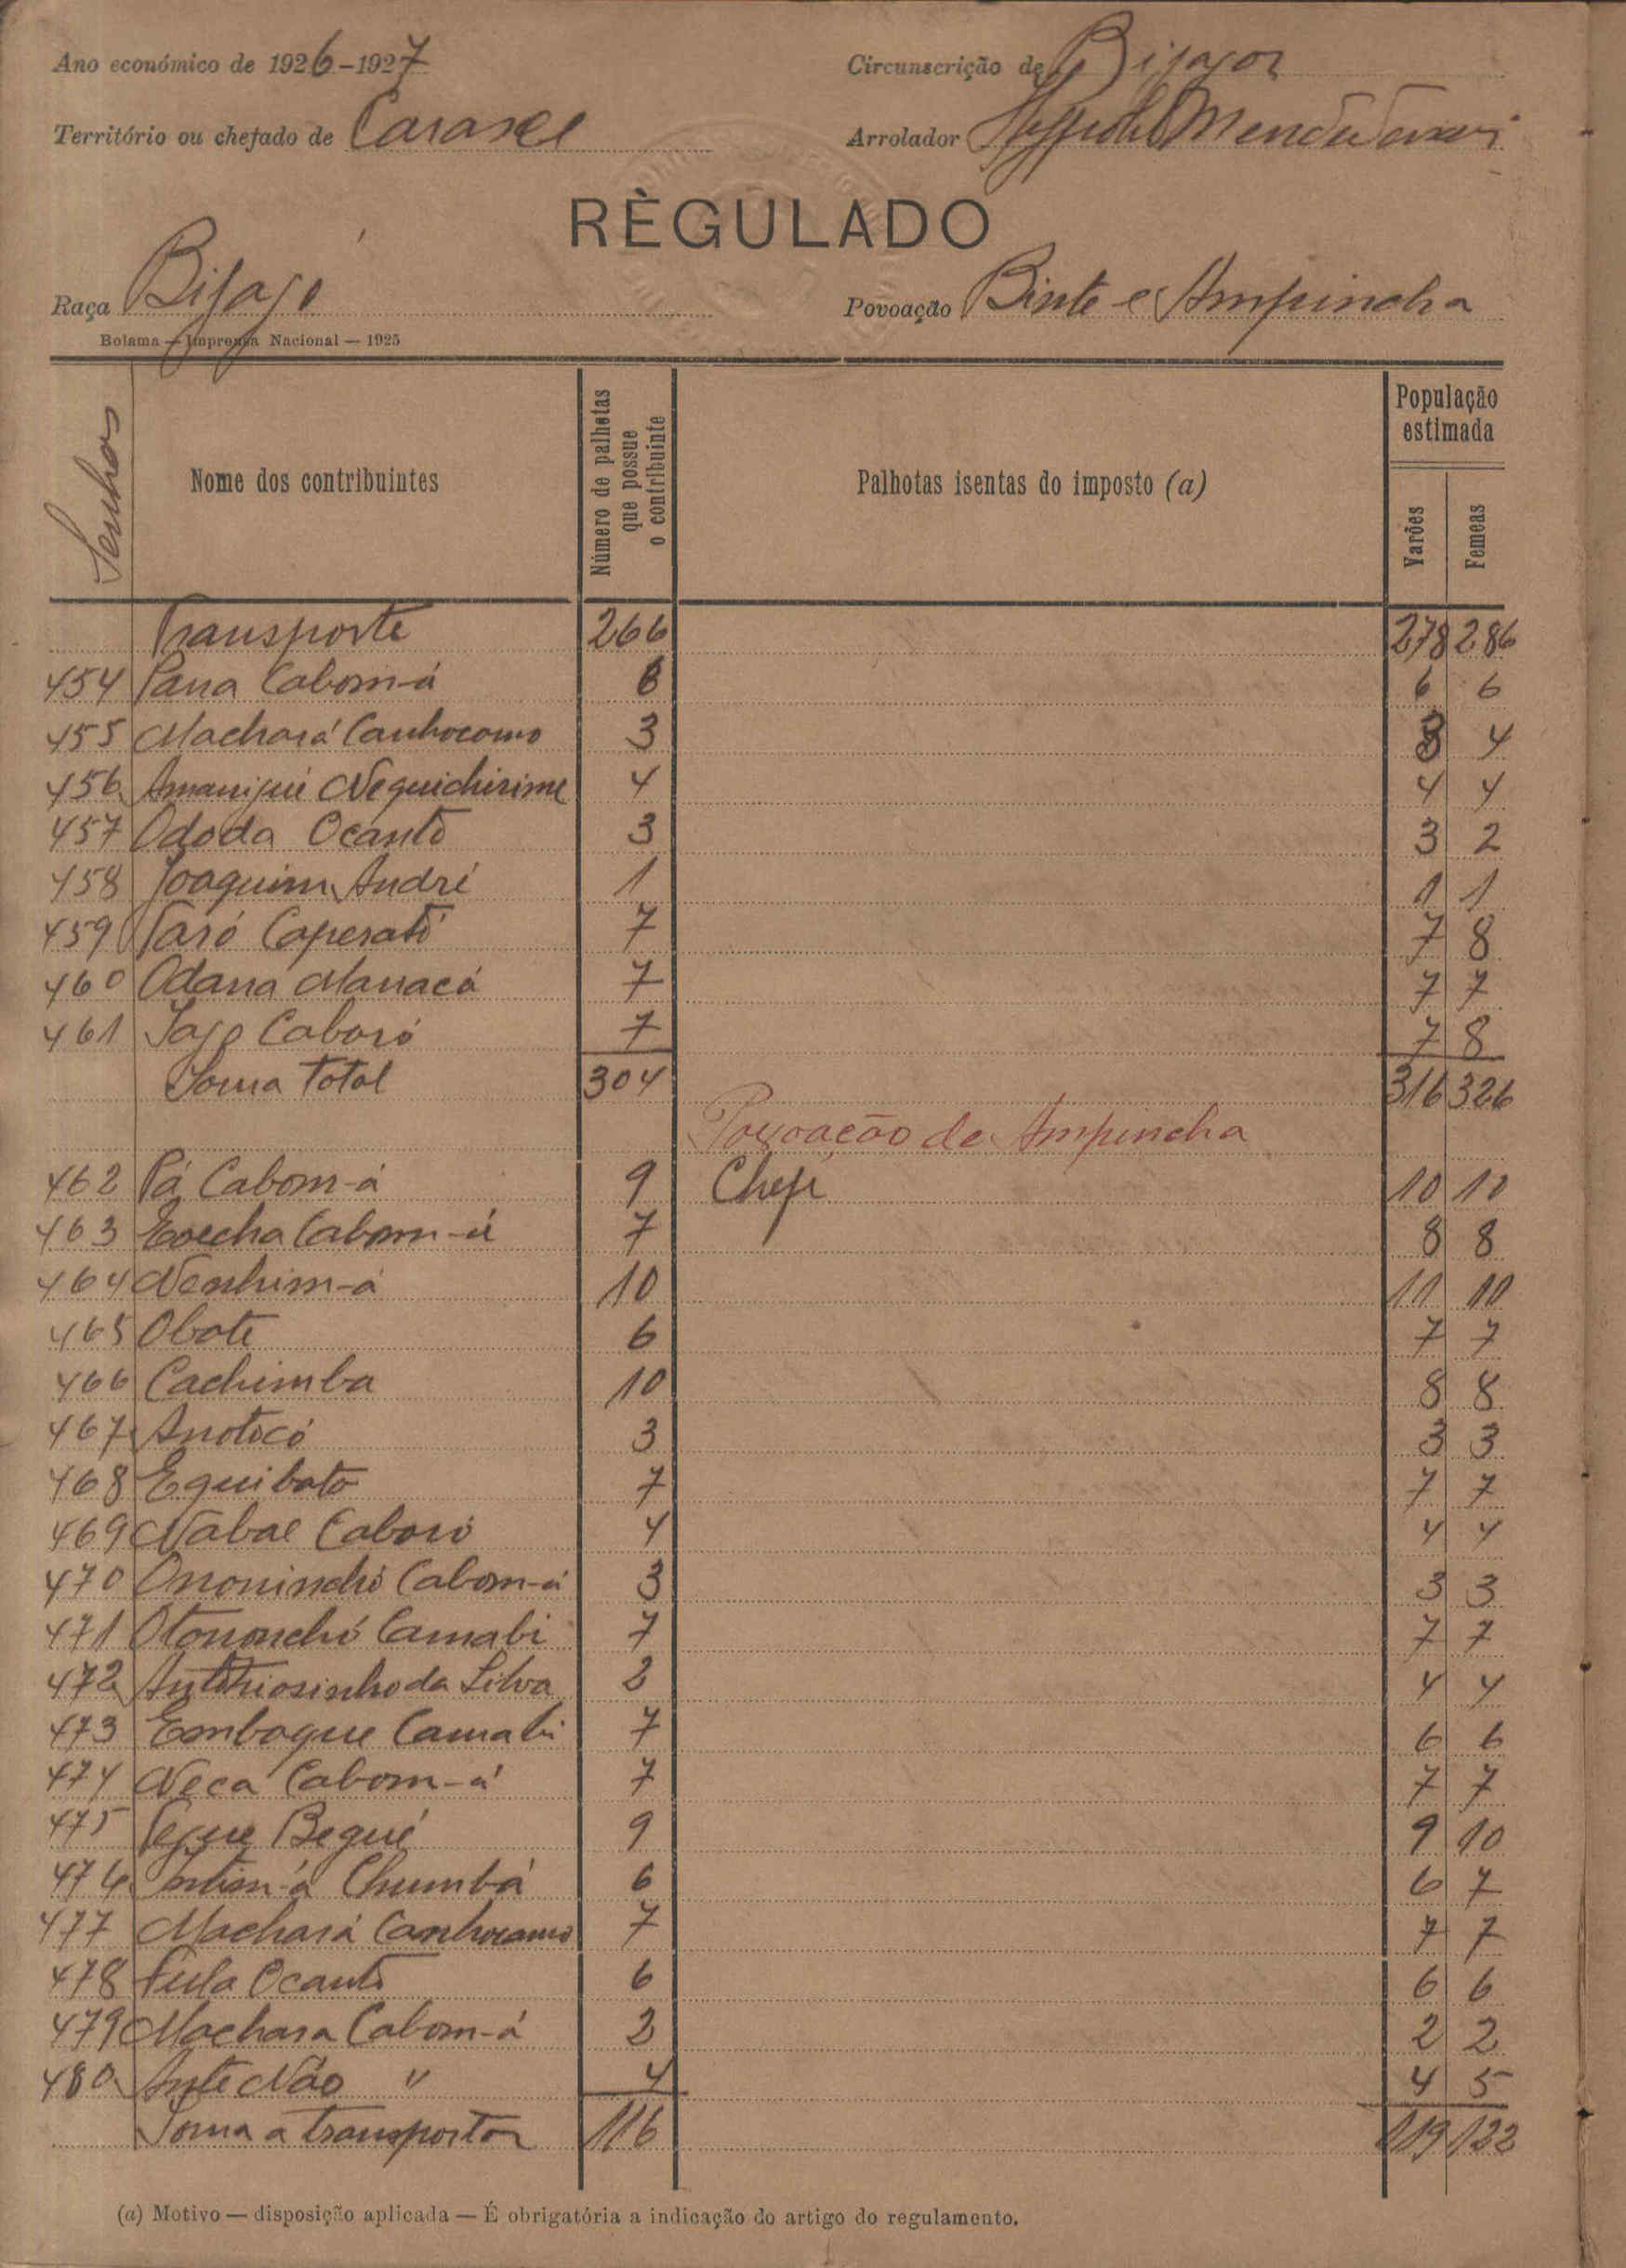 Ano económico de 1926-1927
Circunscrição de Bijagoz
Território ou chefado de Caraxe
Arrolador
RÈGULADO
Raça Bijagó
Povoação Binte e Ampincha
Bolama — Imprensa Nacional — 1925
Senhas
Nome dos contribuintes
Número de palhotas que possue o contribuinte
Palhotas isentas do imposto (a)
População estimada
Varões
Femeas
Transporte 266 278 286
454 Pana Cabom-á 6 6 6
455 Machará Canhocomo 3 3 4
456 Amanijui Nequichirime 4 4 4
457 Ododa Ocantò 3 3 2
458 Joaquim André 1 1 1
459 Taró Caperatò 7 7 8
460 Odana Manacá 7 7 7
461 Jajo Caboró 7 7 8
Soma total 304 316 326
Povoação de Ampincha
462 Pá Cabom-á 9 Chefe 10 10
463 Evecha Cabom-á 7 8 8
464 Nenhim-á 10 11 10
465 Obote 6 7 7
466 Cachimba 10 8 8
467 Anotocó 3 3 3
468 Equibato 7 7 7
469 Nabae Caboró 4 4 4
470 Ononinchó Cabom-á 3 3 3
471 Otononchó Camabi 7 7 7
472 Antóniosinho da Silva 2 4 4
473 Emboque Camabi 7 6 6
474 Neca Cabom-á 7 7 7
475 Bequé 9 9 10
476 Chumbá 6 6 7
477 Machará Canhocamo 7 7 7
478 Fula Ocantò 6 6 6
479 Machara Cabom-á 2 2 2
480 Ante Não " 4 4 5
Soma a transportar 116 119 122
(a) Motivo — disposição aplicada — É obrigatória a indicação do artigo do regulamento.